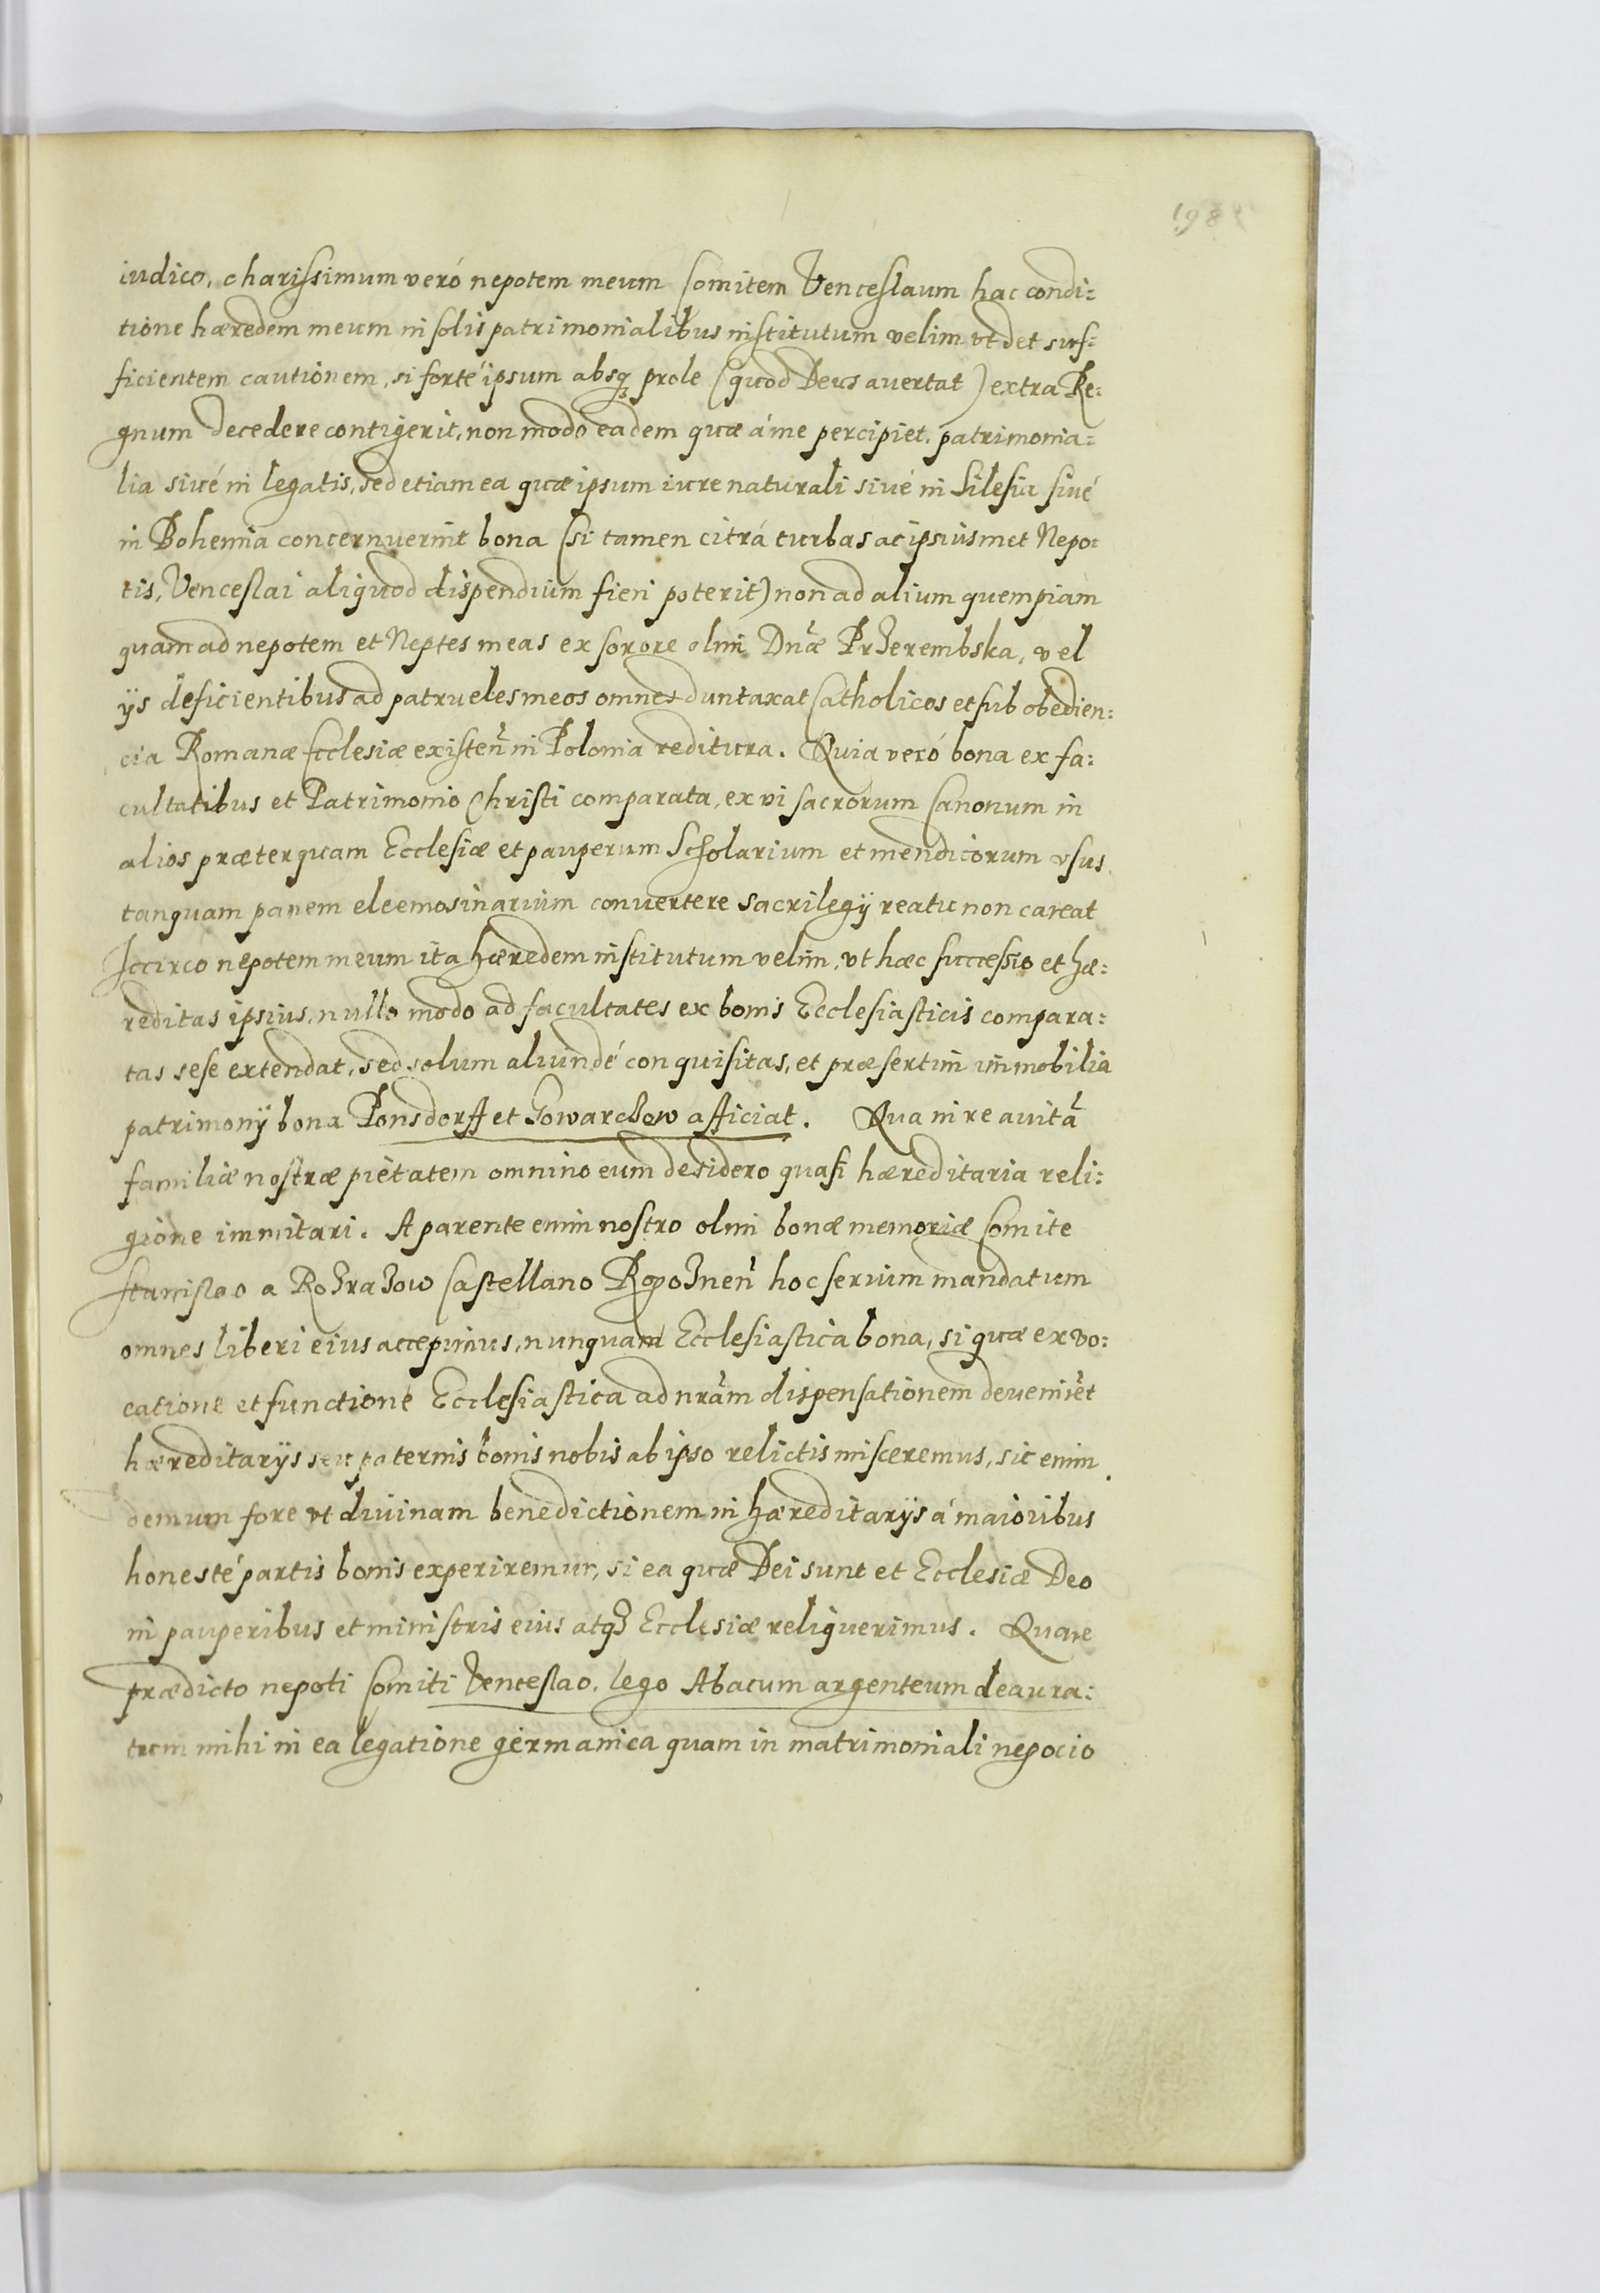 198
iudico, charissimum veró nepotem meum Comitem Venceslaum hac condi:
tione hæredem meum in solis patrimonialibus institutum velim vt det suf:
ficientem cautionem, si forte ipsum absq prole (quod Deus auertat) extra Re:
gnum decedere contigerit, non modo eadem quæ á me percipiet, patrimonia:
lia siué in legatis, sed etiam ea quæ ipsum iure naturali siué in Silesia siué
in Bohemia concernuerint bona (si tamen citrá turbas ac ipsiusmet Nepo:
tis, Venceslai aliquod dispendium fieri poterit) non ad alium quempiam
quam ad nepotem et Neptes meas ex sorore olim Dnæ Przerembska, vel
ijs deficientibus ad patrueles meos omnes duntaxat Catholicos et sub obedien:
cia Romanæ Ecclesiæ existen in Polonia reditura. Quia veró bona ex fa:
cultatibus et Patrimonio Christi comparata, ex vi sacrorum Canonum in
alios præterquam Ecclesiæ et pauperum Scholarium et mendicorum vsus
tanquam panem eleemosinarium convertere sacrilegij reatu non careat
Iccirco nepotem meum ita hæredem institutum velim, vt hæc successio et hæ:
reditas ipsius, nullo modo ad facultates ex bonis Ecclesiasticis compara:
tas sese extendat, sed solum aliundé conquisitas, et præsertim immobilia
patrimonij bona Ponsdorff et Gowarchow afficiat. Qua in re auitā
familiæ nostræ pietatem omnino eum desidero quasi hæreditaria reli:
gione immitari. A parente enim nostro olim bonæ memoriæ Comite
Stanislao a Rozrazow Castellano Rogoznen hoc serium mandatum
omnes liberi eius accepimus, nunquam Ecclesiastica bona, si quæ ex vo:
catione et functione Ecclesiastica ad nram dispensationem deueniret
hæreditarijs seu paternis bonis nobis ab ipso relictis misceremus, sic enim
demum fore vt diuinam benedictionem in hæreditarijs á maioribus
honesté partis bonis experiremur, si ea quæ Dei sunt et Ecclesiæ Deo
in pauperibus et ministris eius atqz Ecclesiæ reliquerimus. Quare
prædicto nepoti Comiti Venceslao, lego Abacum argenteum deaura:
tum mihi in ea legatione germanica quam in matrimoniali negocio